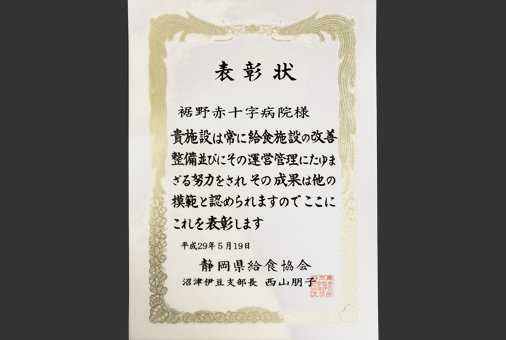 表彰状
裾野赤十字病院様
貴施設は常に給食施設の改善
整備並びにその運営管理にたゆま
ざる努力をされその成果は他の
模範と認められますのでここに
これを表彰します
平成29年5月19日
静岡県給食協会
沼津伊豆支部長 西山朋子